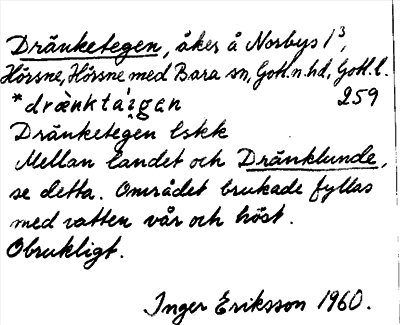 Dränketegen, åker å Norbys 1³,
Hörsne, Hörsne med Bara sn, Gotl. n. hd, Gotl. l.
*drænktäigan 259
Dränketegen lskk
Mellan landet och Dränklunde,
se detta. Området brukade fyllas
med vatten vår och höst.
Obrukligt.
Inger Eriksson 1960.